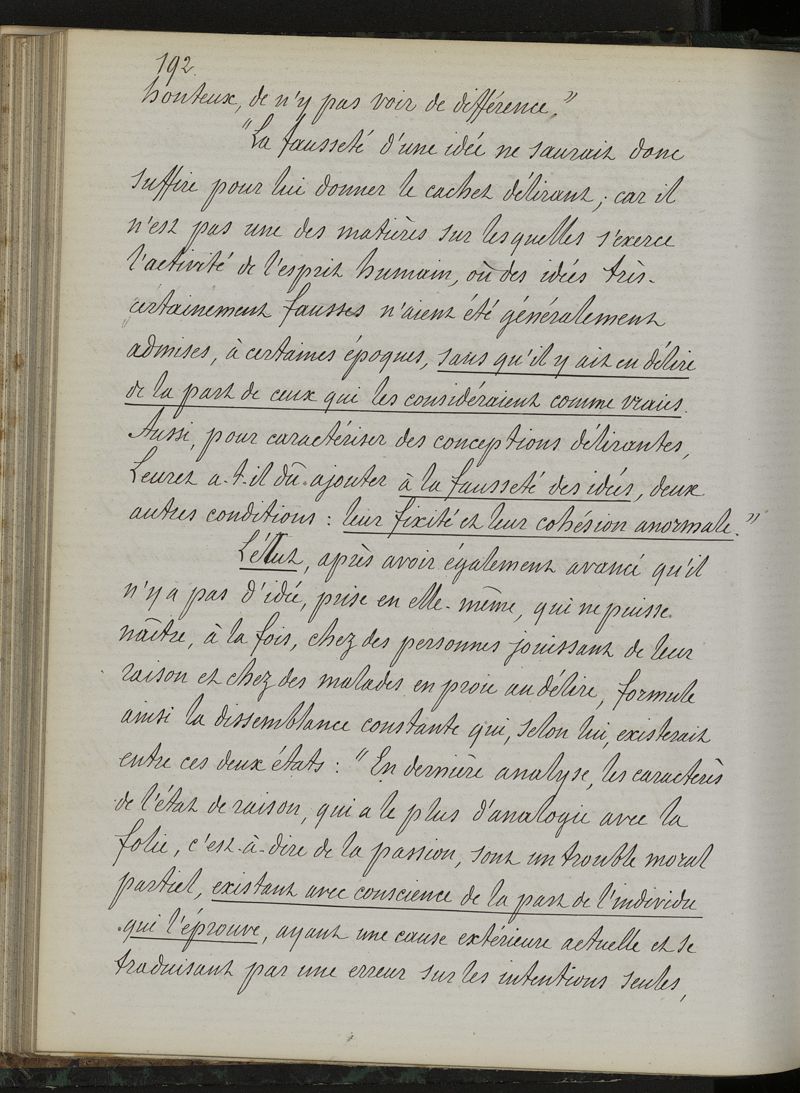 192.
honteux, de n'y pas voir de différence."
"La fausseté d'une idée ne saurait donc
suffire pour lui donner le cachet délirant; car il
n'est pas une des matières sur lesquelles s'exerce
l'activité de l'esprit humain, où des idées très-
certainement fausses n'aient été généralement
admises, à certaines époques, sans qu'il y ait eu délire
de la part de ceux qui les considéraient comme vraies.
Aussi, pour caractériser des conceptions délirantes,
Leuret a-t-il dû ajouter à la fausseté des idées, deux
autres conditions: leur fixité et leur cohésion anormale."
Lélut, après avoir également avancé qu'il
n'y a pas d'idée, prise en elle-même, qui ne puisse
naître, à la fois, chez des personnes jouissant de leur
raison et chez des malades en proie au délire, formule
ainsi la dissemblance constante qui, selon lui, existerait
entre ces deux états: "En dernière analyse, les caractères
de l'état de raison, qui a le plus d'analogie avec la
folie, c'est-à-dire de la passion, sont un trouble moral
partiel, existant avec conscience de la part de l'individu
qui l'éprouve, ayant une cause extérieure actuelle et se
traduisant par une erreur sur les intentions seules,